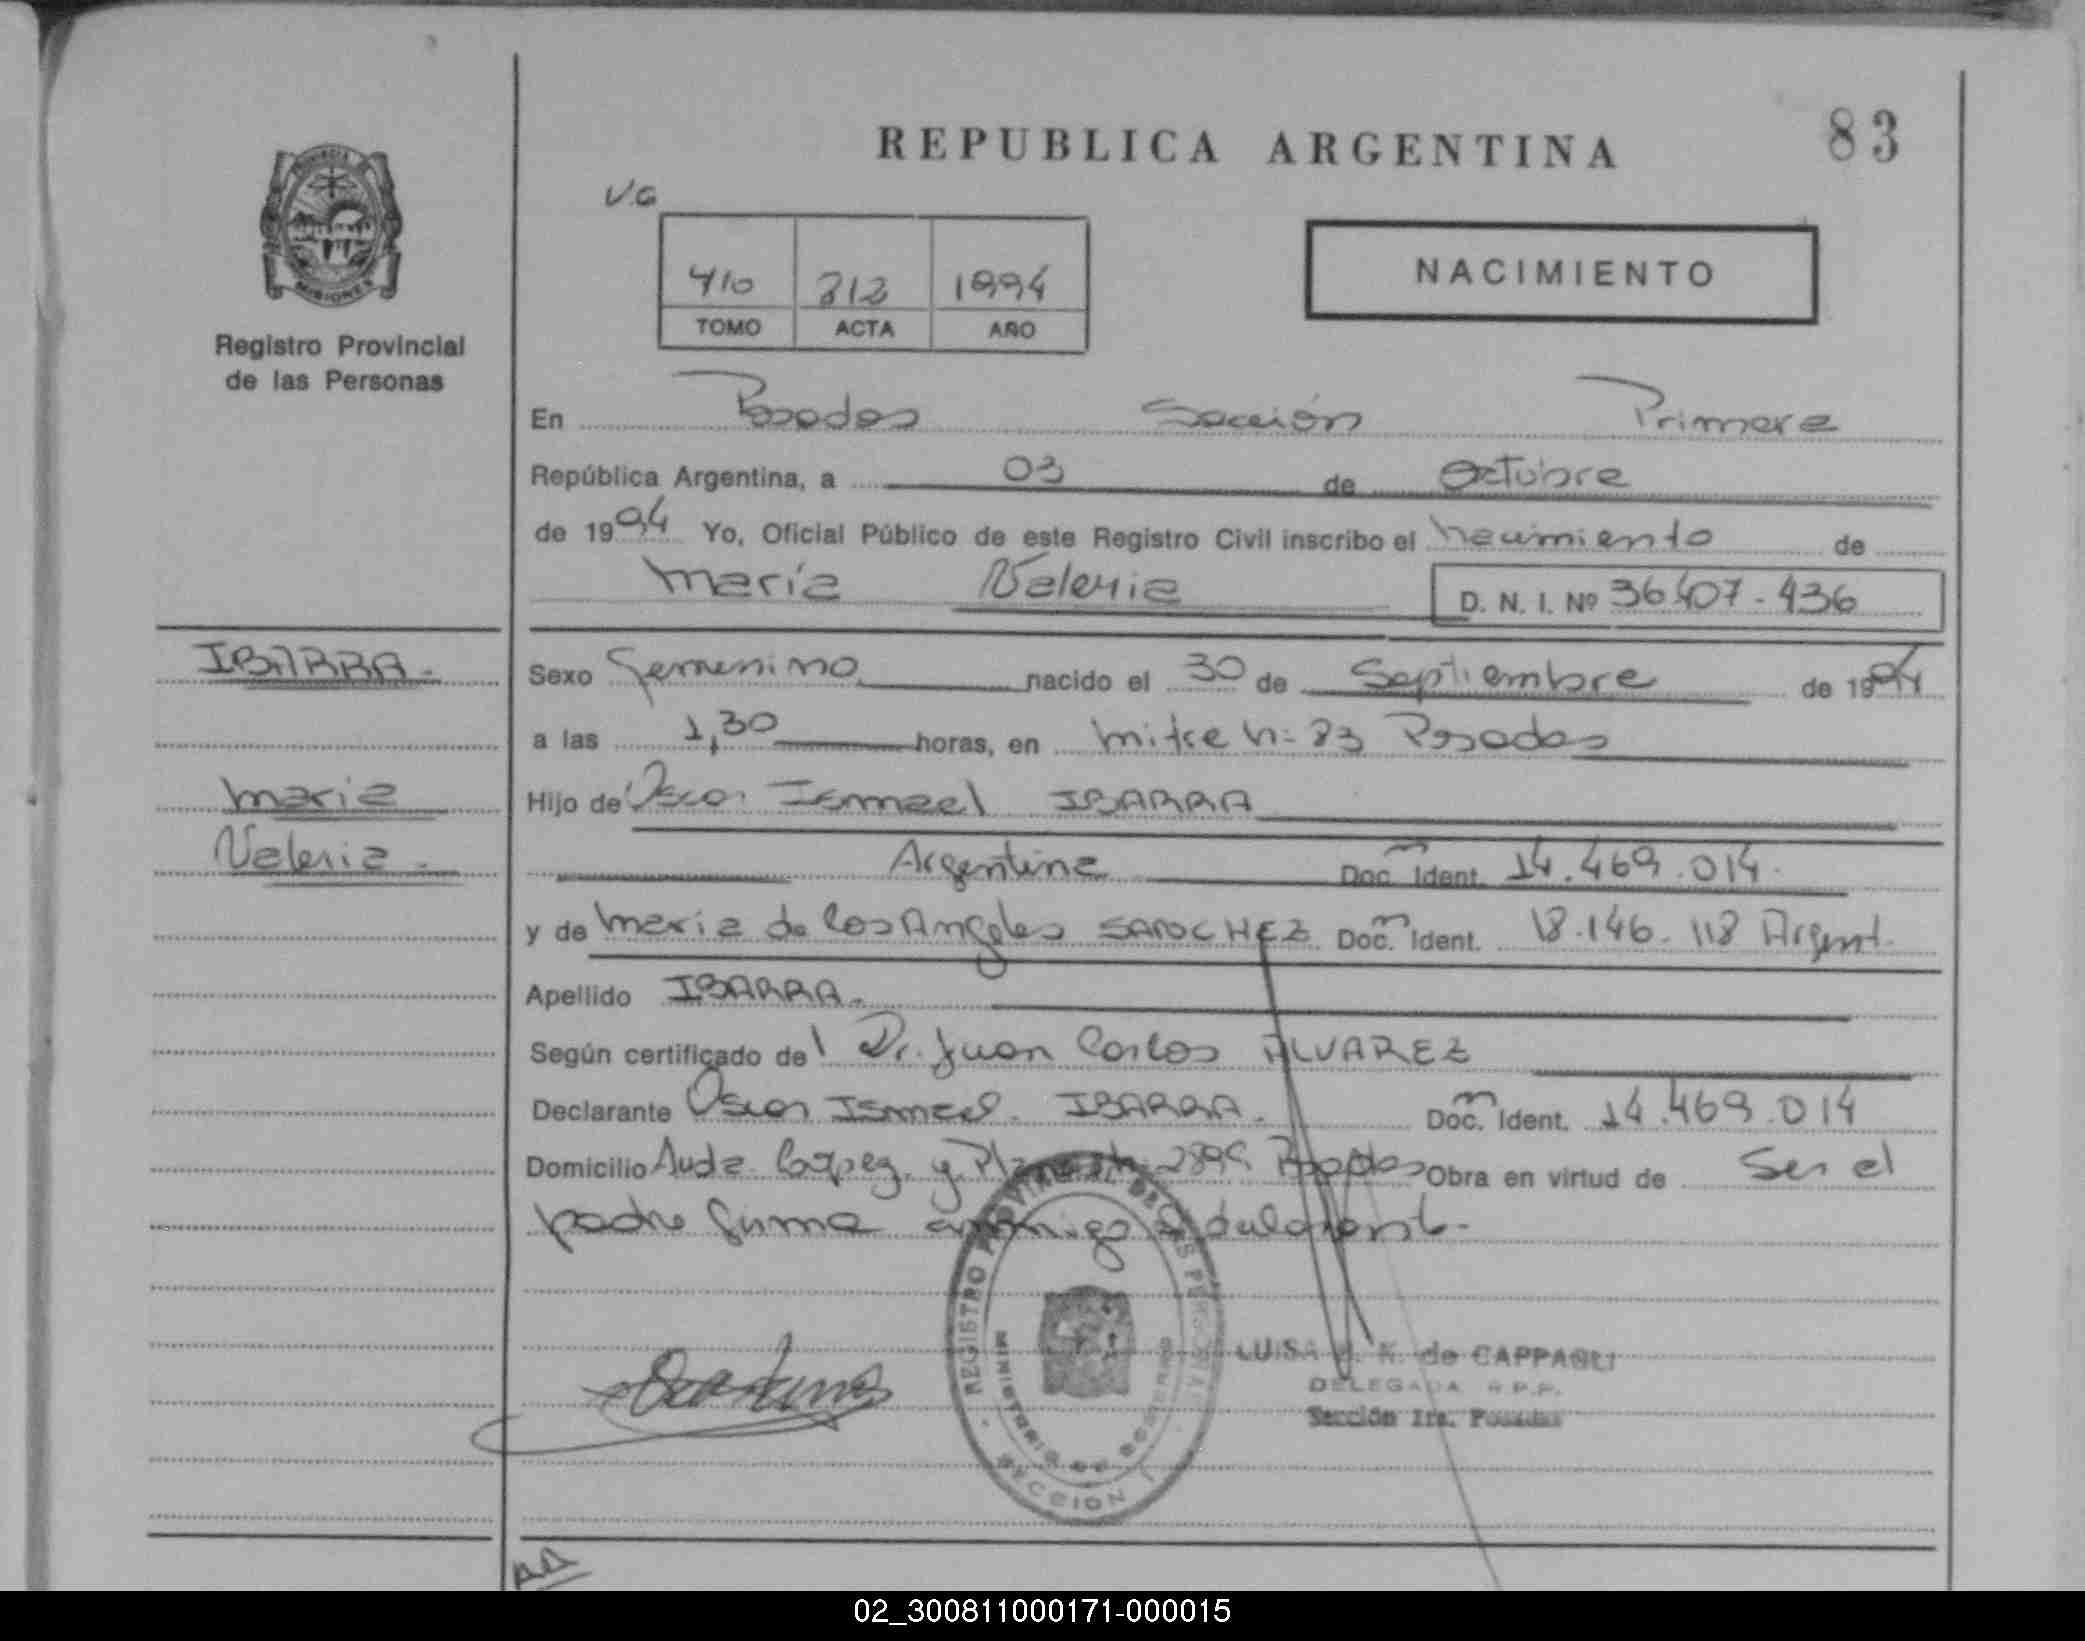 REPUBLICA ARGENTINA
83
V.G
410 312 1994
TOMO ACTA AÑO
NACIMIENTO
PROVINCIA
MISIONES
Registro Provincial
de las Personas
En Posadas Sección Primera
República Argentina, a 03 de Octubre
de 1994 Yo, Oficial Público de este Registro Civil inscribo el nacimiento de
María Valeria D. N. I. Nº 36.407-436
IBARRA.
María
Valeria.
Sexo Femenino nacido el 30 de Septiembre de 1994
a las 1,30 horas, en Mitre Nº 83 Posadas
Hijo de Oscar Ismael IBARRA
Argentina Doc. Ident. 14.469.014.
y de María de los Angeles SANCHEZ Doc. Ident. 18.146.118 Argent.
Apellido IBARRA.
Según certificado del Dr. Juan Carlos ALVAREZ
Declarante Oscar Ismael. IBARRA. Doc. Ident. 14.469.014
Domicilio Avda. Lopez y Planes 2899 Posadas Obra en virtud de Ser el
padre firma conmigo
REGISTRO PROVINCIAL DE LAS PERSONAS
MINISTERIO DE GOBIERNO
SECCION 1
LUISA de CAPPAGLI
DELEGADA R.P.P.
Sección 1ra. Posadas
02_300811000171-000015